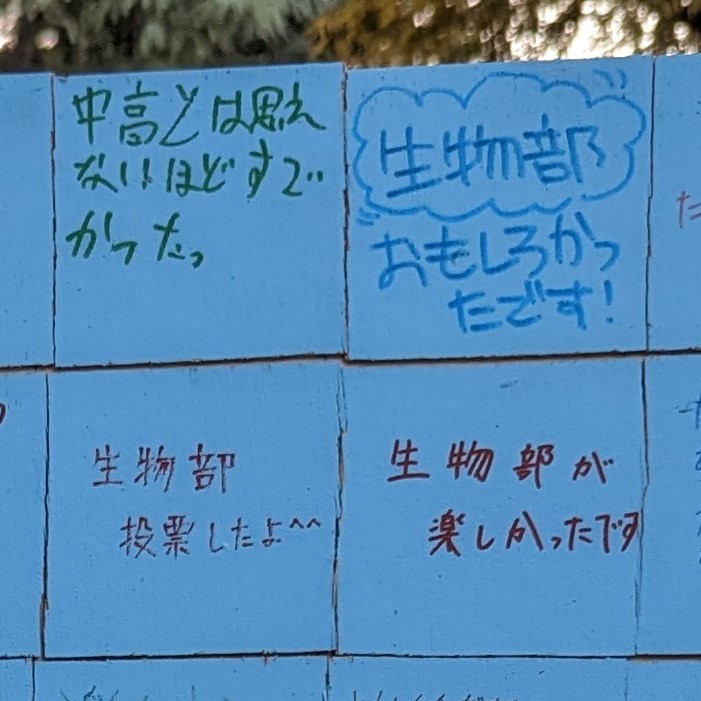 中高とは思え
ないほどすご
かったっ
生物部
おもしろかっ
たです!
た
生物部
投票したよ^^
生物部が
楽しかったです